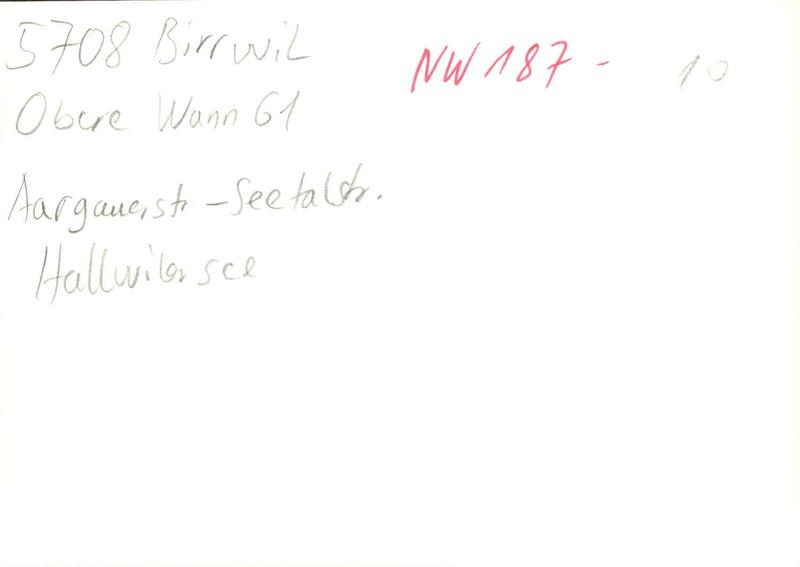 5708 Birrwil
NW 187 - 10
Obere Wann 61
Aargauerstr - Seetalstr.
Hallwilersee